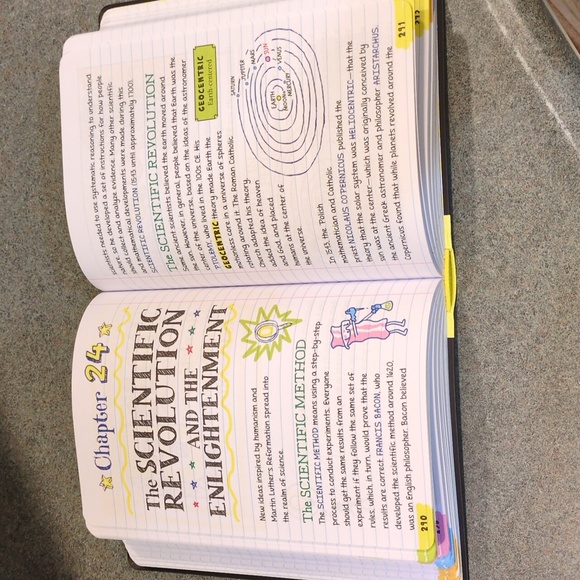 Chapter 24
The SCIENTIFIC
REVOLUTION
AND THE
ENLIGHTENMENT
New ideas inspired by humanism and
Martin Luther's Reformation spread into
the realm of science.
The SCIENTIFIC METHOD
The SCIENTIFIC METHOD means using a step-by-step
process to conduct experiments. Everyone
should get the same results from an
experiment if they follow the same set of
rules, which, in turn, would prove that the
results are correct. FRANCIS BACON, who
developed the scientific method around 1620,
was an English philosopher. Bacon believed
290
scientists needed to use systematic reasoning to understand
nature, so he developed a set of instructions for how people
should collect and analyze evidence. Many other scientific
and mathematical developments were made during this
SCIENTIFIC REVOLUTION (1543 until approximately 1700).
The SCIENTIFIC REVOLUTION
Ancient scientists believed the earth moved around
the sun. However, in general, people believed that Earth was the
center of the universe, based on the ideas of the astronomer
PTOLEMY, who lived in the 100s CE. His
GEOCENTRIC theory made Earth the
motionless core in a universe of spheres
rotating around it. The Roman Catholic
Church adapted his theory,
added the idea of heaven
and God, and placed
humans at the center of
the universe.
GEOCENTRIC
Earth-centered
SATURN
JUPITER
MARS
SUN
VENUS
EARTH
MOON
MERCURY
In 1543, the Polish
mathematician and Catholic
priest NICOLAUS COPERNICUS published the
theory that the solar system was HELIOCENTRIC—that the
sun was at the center—which was originally conceived by
the ancient Greek astronomer and philosopher ARISTARCHUS.
Copernicus found that while planets revolved around the
291